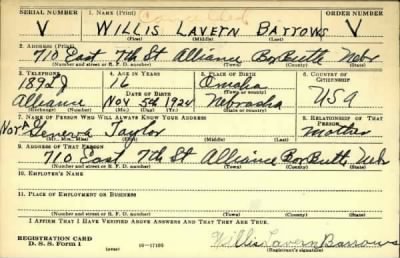 Cancelled
SERIAL NUMBER 1. NAME (Print) ORDER NUMBER
V WILLIS LAVERN BARROWS V
(First) (Middle) (Last)
2. ADDRESS (Print)
710 East 7th St Alliance Box Butte Nebr
(Number and street or R. F. D. number) (Town) (County) (State)
3. TELEPHONE 4. AGE IN YEARS 5. PLACE OF BIRTH 6. COUNTRY OF CITIZENSHIP
1892J 16 Omaha
DATE OF BIRTH (Town or county)
Alliance Nov 5th 1924 Nebraska USA
(Exchange) (Number) (Mo.) (Day) (Yr.) (State or country)
7. NAME OF PERSON WHO WILL ALWAYS KNOW YOUR ADDRESS 8. RELATIONSHIP OF THAT PERSON
Geneva Taylor Mother
(Mr., Mrs., Miss) (First) (Middle) (Last)
9. ADDRESS OF THAT PERSON
710 East 7th St Alliance Box Butte Neb
(Number and street or R. F. D. number) (Town) (County) (State)
10. EMPLOYER'S NAME
11. PLACE OF EMPLOYMENT OR BUSINESS
(Number and street or R. F. D. number) (Town) (County) (State)
I AFFIRM THAT I HAVE VERIFIED ABOVE ANSWERS AND THAT THEY ARE TRUE.
REGISTRATION CARD
D. S. S. Form 1 (over) 16—17105 Willis Lavern Barrows
(Registrant's signature)